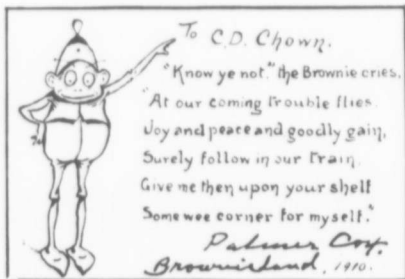 To C.D. Chown.
"Know ye not." the Brownie cries,
"At our coming trouble flies.
Joy and peace and goodly gain,
Surely follow in our train.
Give me then upon your shelf
Some wee corner for myself."
Palmer Cox.
Brownieland, 1910.